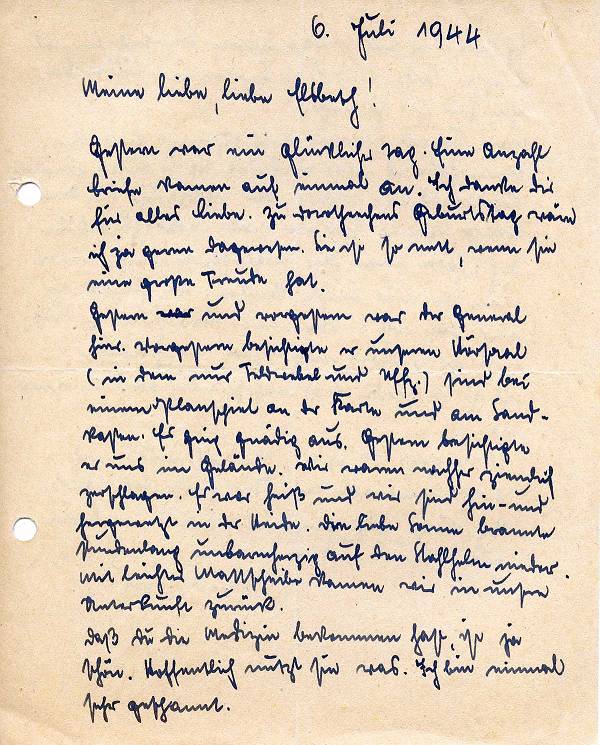 6. Juli 1944
Meine liebe, liebe Elsbeth!
Gestern war ein glücklicher Tag. Eine Anzahl
Briefe kamen auf einmal an. Ich danke Dir
für alles Liebe. Zu Dorotheechens Geburtstag wäre
ich ja gerne dagewesen. Sie ist so nett, wenn sie
eine große Freude hat.
Gestern war und vorgestern war der General
hier. Vorgestern besichtigte er unseren Hörsaal
(in dem nur Feldwebel und Uffz.) sind bei
einem Planspiel an der Karte und am Sand-
kasten. Es ging gnädig aus. Gestern besichtigte
er uns im Gelände. Wir waren nachher ziemlich
zerschlagen. Es war heiß und wir sind hin- und
hergewetzt in der Heide. Die liebe Sonne brannte
stundenlang unbarmherzig auf den Stahlhelm nieder.
Mit leichter Mattscheibe kamen wir in unsere
Unterkunft zurück.
Daß Du die Medizin bekommen hast, ist ja
schön. Hoffentlich nützt sie was. Ich bin einmal
sehr gespannt.